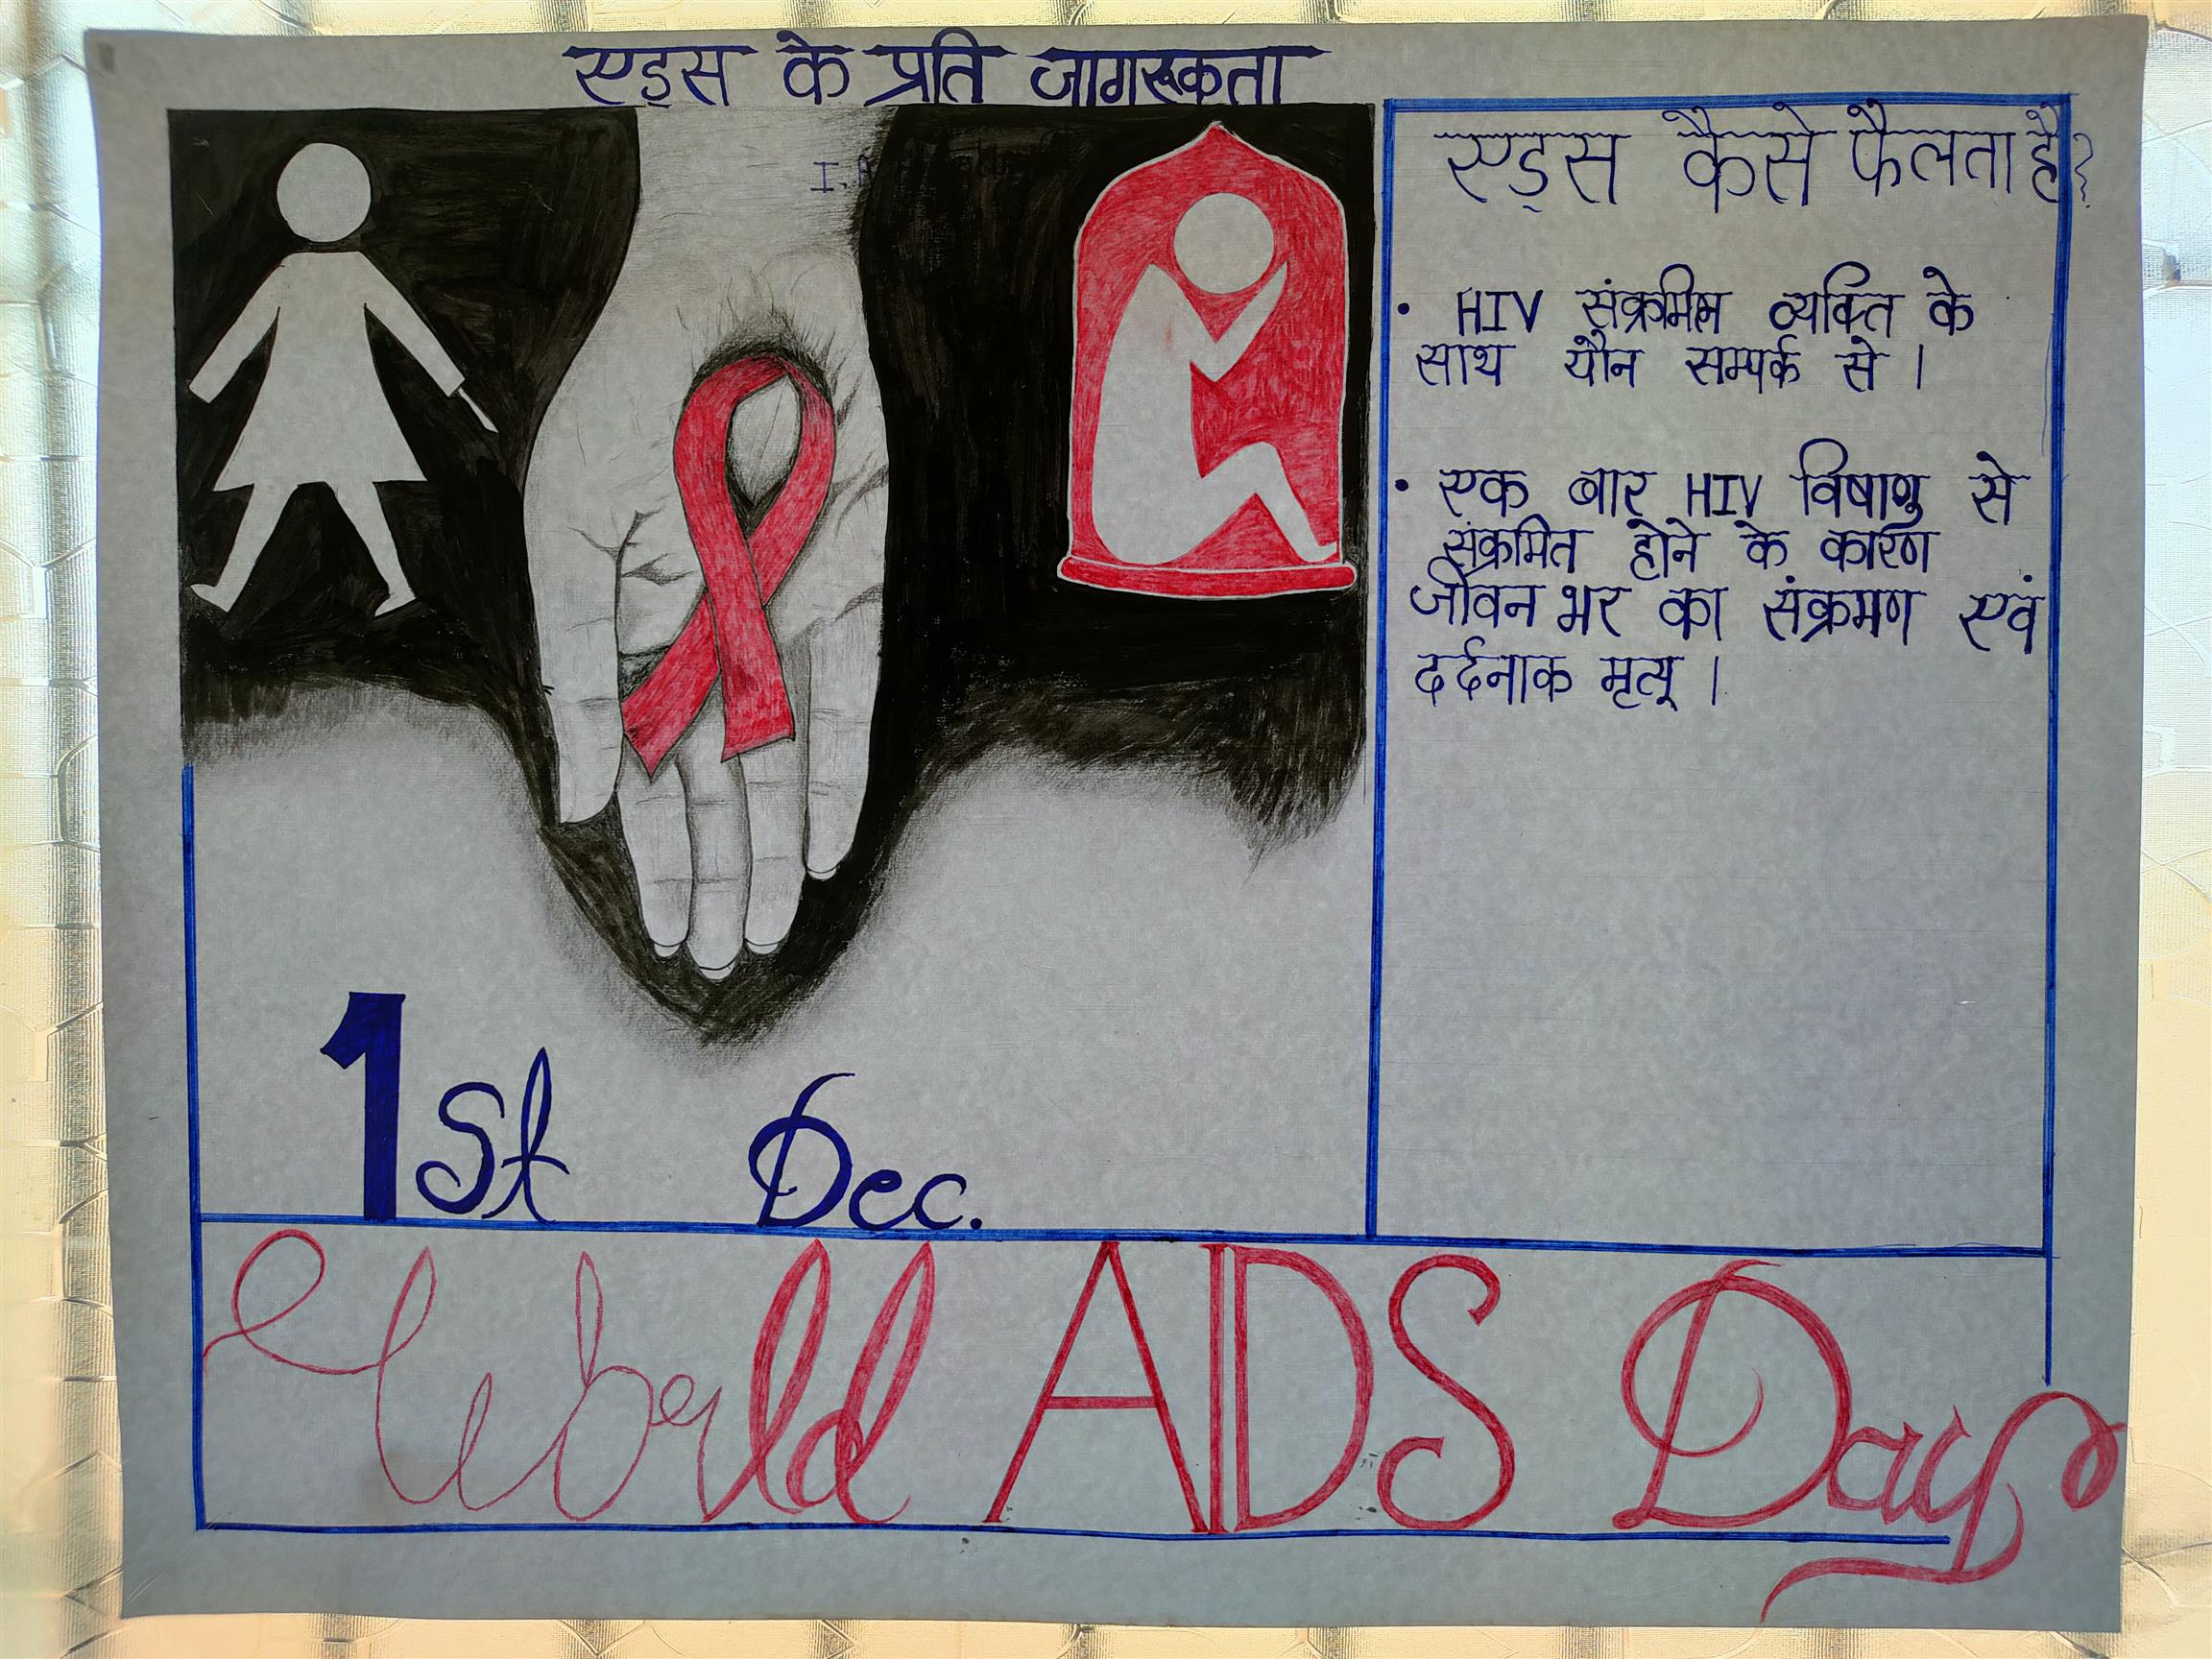 एड्स के प्रति जागरूकता
एड्स कैसे फैलता है?
• HIV संक्रमित व्यक्ति के
साथ यौन सम्पर्क से ।
• एक बार HIV विषाणु से
संक्रमित होने के कारण
जीवन भर का संक्रमण एवं
दर्दनाक मृत्यू ।
1st Dec.
World AIDS Day